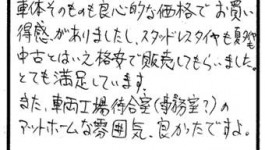 車体そのものも良心的な価格でお買い
得感がありましたし、スタッドレスタイヤも
中古とはいえ格安で販売してもらいました。
とても満足しています。
また、車両工場待合室(事務室?)の
アットホームな雰囲気、良かったですよ。